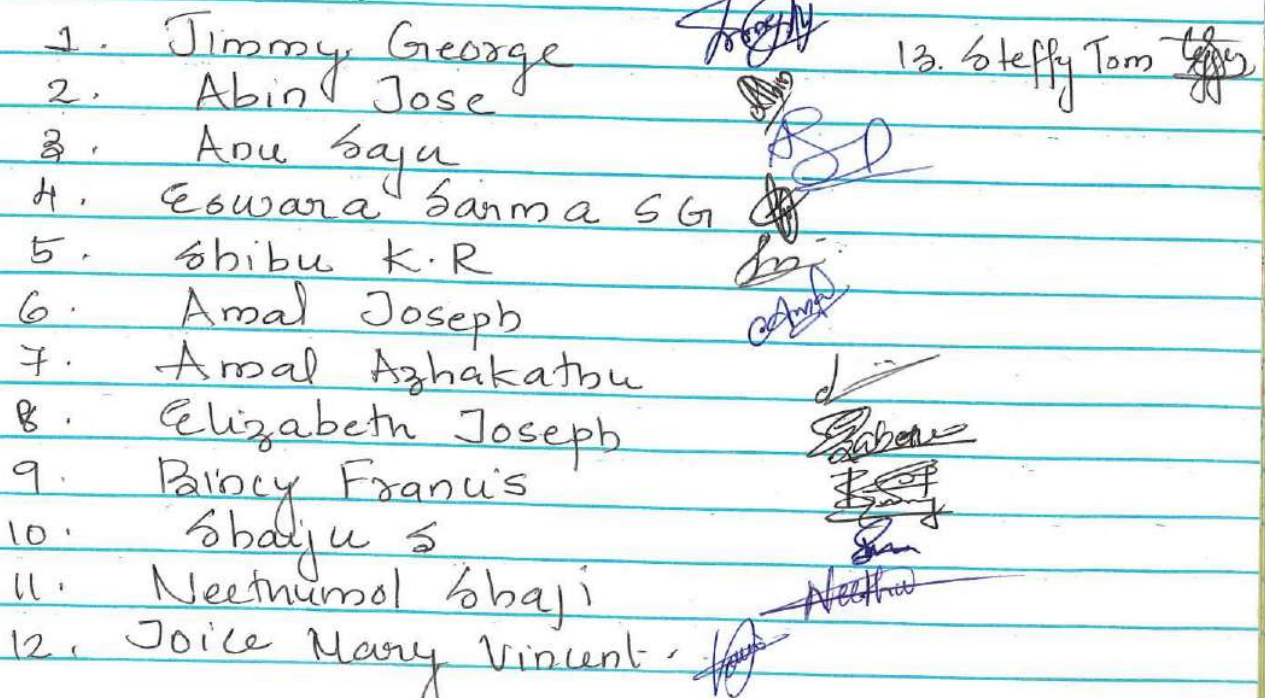 1. Jimmy George
2. Abin Jose
3. Anu Saju
4. Eswara Sarma S G
5. Shibu K.R
6. Amal Joseph Amal
7. Amal Azhakathu
8. Elizabeth Joseph
9. Bincy Francis
10. Shaiju S
11. Neethumol Shaji Neethu
12. Joice Mary Vincent.
13. Steffy Tom